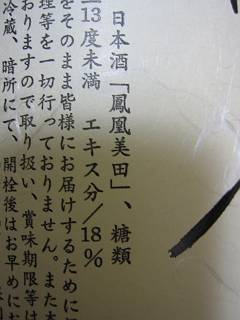 日本酒「鳳凰美田」、糖類
13度未満 エキス分／18％
をそのまま皆様にお届けするために
理等を一切行っておりません。また本
おりますので取り扱い、賞味期限等は
冷蔵、暗所にて、開栓後はお早めにお